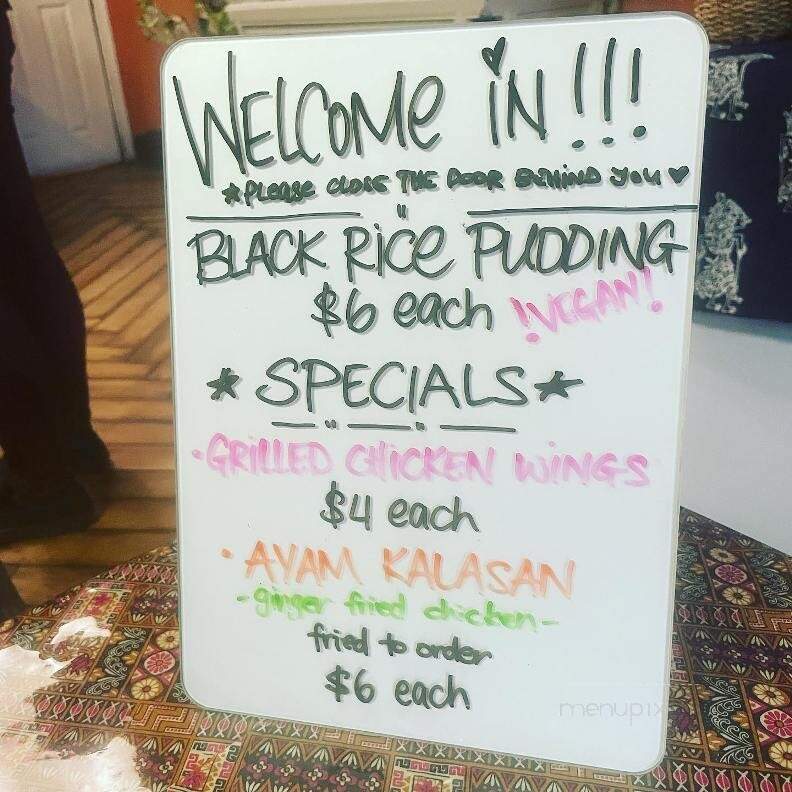 WELCOME IN!!!
*PLEASE CLOSE THE DOOR BEHIND YOU♥
BLACK RICE PUDDING
$6 each !VEGAN!
★ SPECIALS ★
• GRILLED CHICKEN WINGS
$4 each
• AYAM KALASAN
- ginger fried chicken -
fried to order
$6 each
menupix